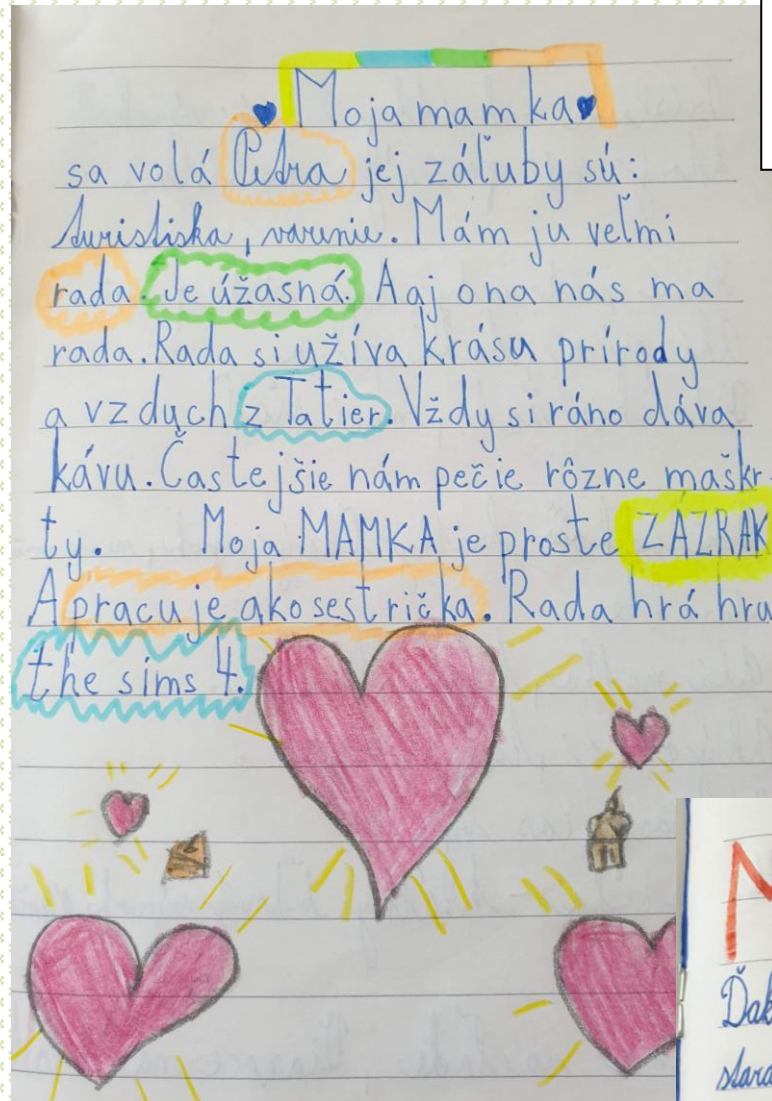 Moja mamka
sa volá Petra jej záľuby sú:
turistiska, varenie. Mám ju veľmi
rada. Je úžasná. Aaj ona nás ma
rada. Rada si užíva krásu prírody
a vzduch z Tatier. Vždy si ráno dáva
kávu. Častejšie nám pečie rôzne maškr-
ty. Moja MAMKA je proste ZÁZRAK
A pracuje ako sestrička. Rada hrá hru
the sims 4.
M
Ďak
stara